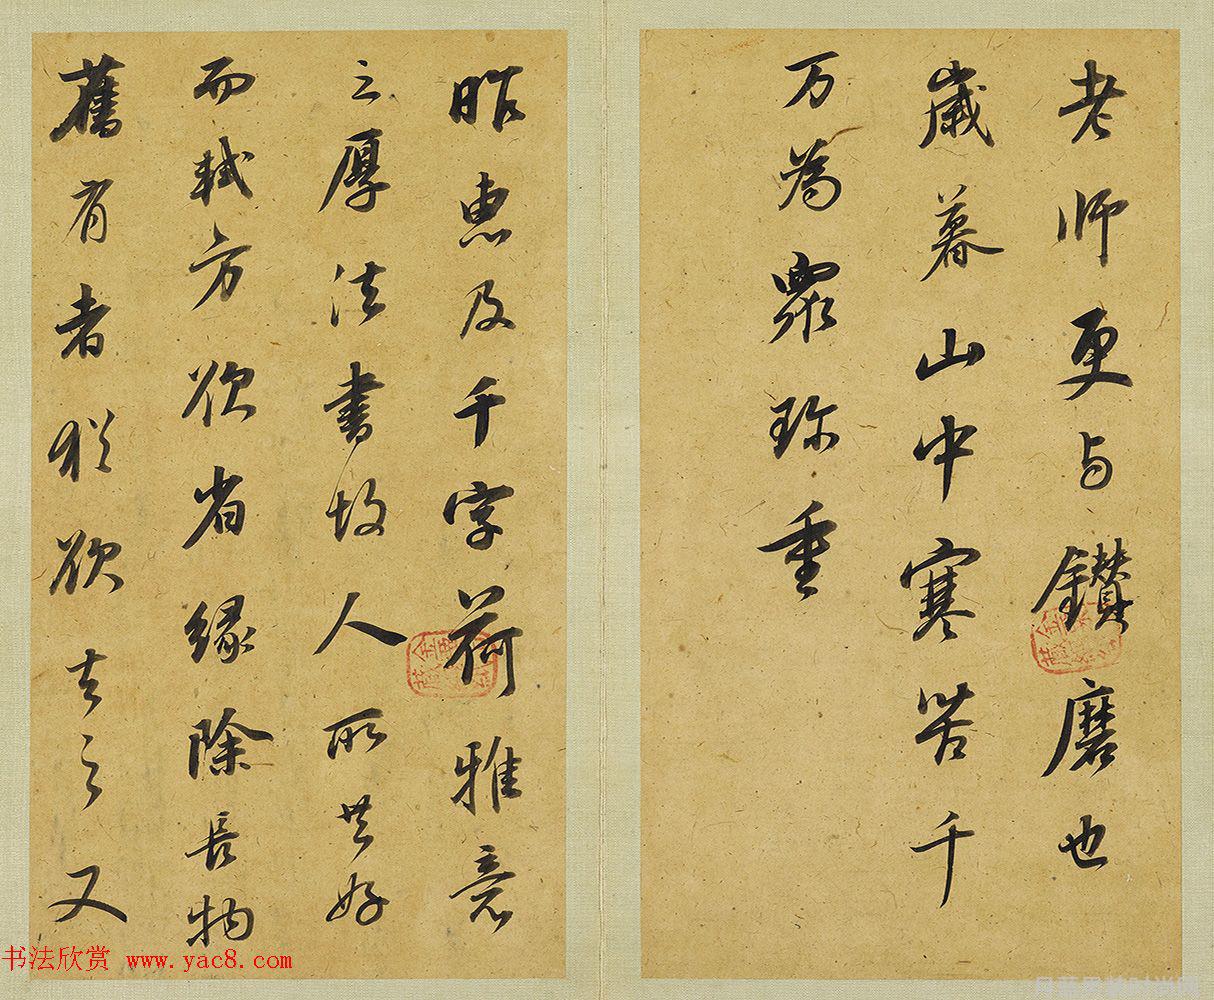 老师更与鑽磨也
歲暮山中寒苦千
万為衆珎重
昨惠及千字荷雅意
之厚法書故人所共好
而軾方欲省緣除長物
舊有者猶欲去之又
书法欣赏 www.yac8.com